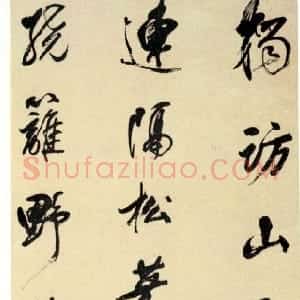 獨訪山
連隔松叢
繞籬野
Shufaziliao.COM